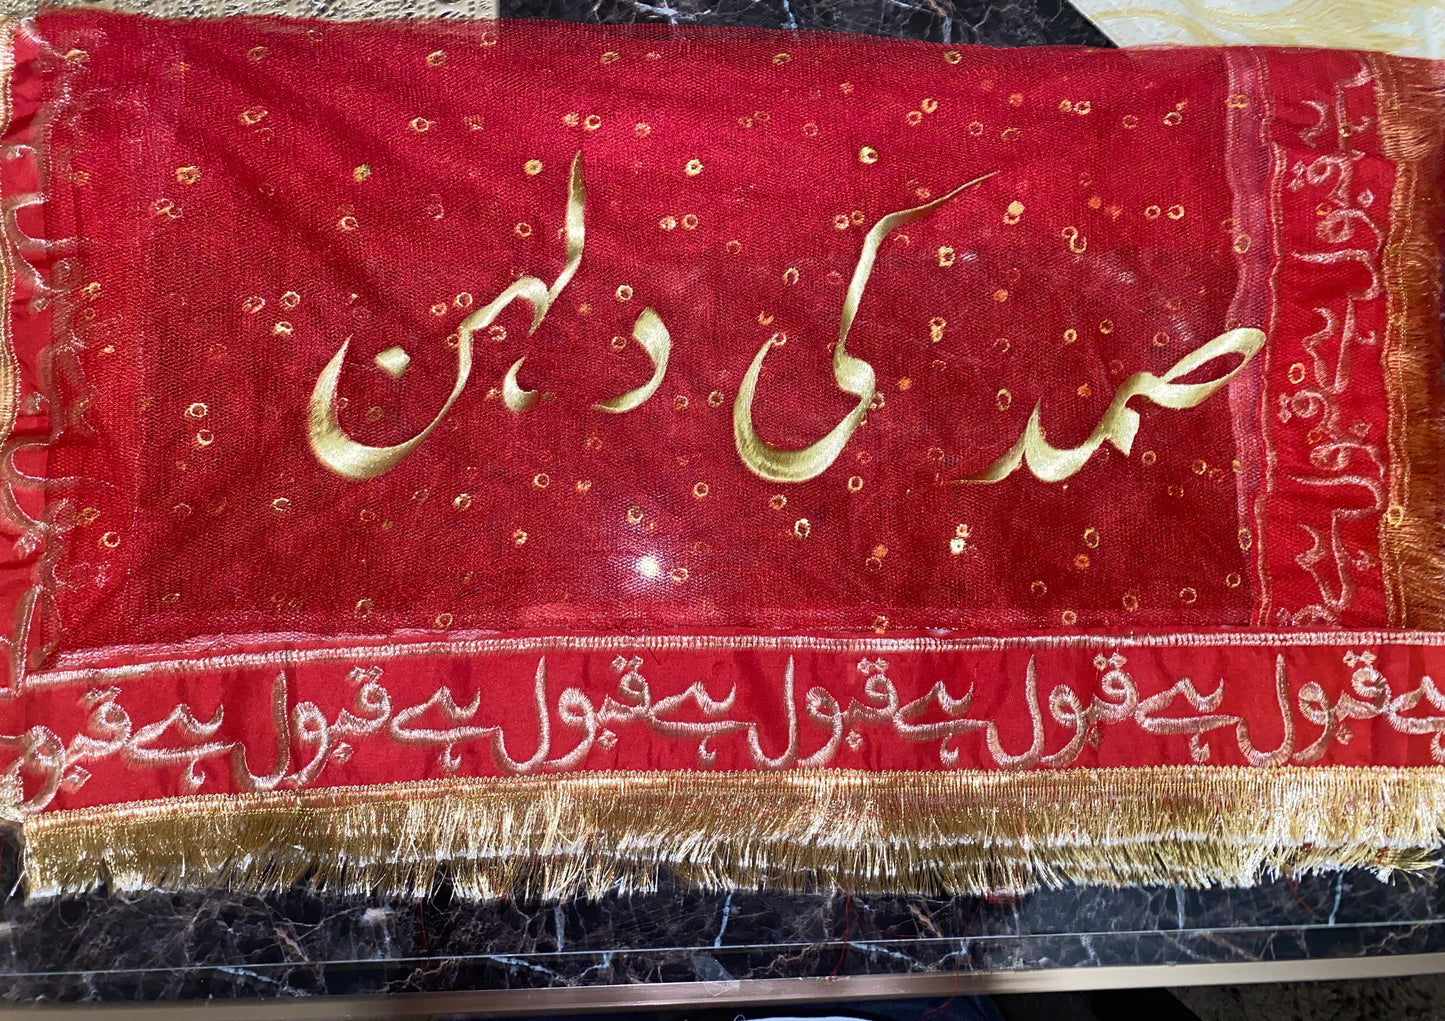 صمد کی دلہن
قبول ہے
قبول ہے
قبول ہے قبول ہے قبول ہے قبول ہے قبول ہے قبول